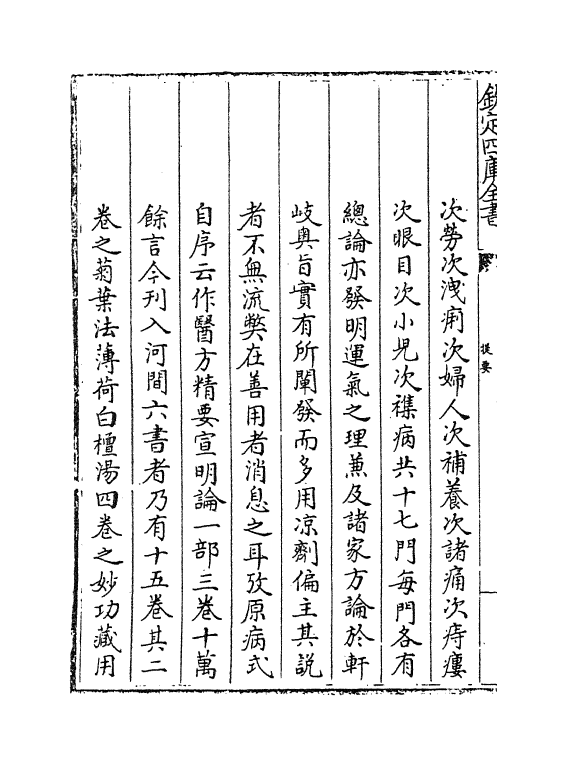 欽定四庫全書
提要
次勞次洩痢次婦人次補養次諸痛次痔瘻
次眼目次小兒次襍病共十七門每門各有
總論亦發明運氣之理兼及諸家方論於軒
岐奥旨實有所闡發而多用凉劑偏主其説
者不無流弊在善用者消息之耳攷原病式
自序云作醫方精要宣明論一部三卷十萬
餘言今刊入河間六書者乃有十五卷其二
卷之菊葉法薄荷白檀湯四卷之妙功藏用